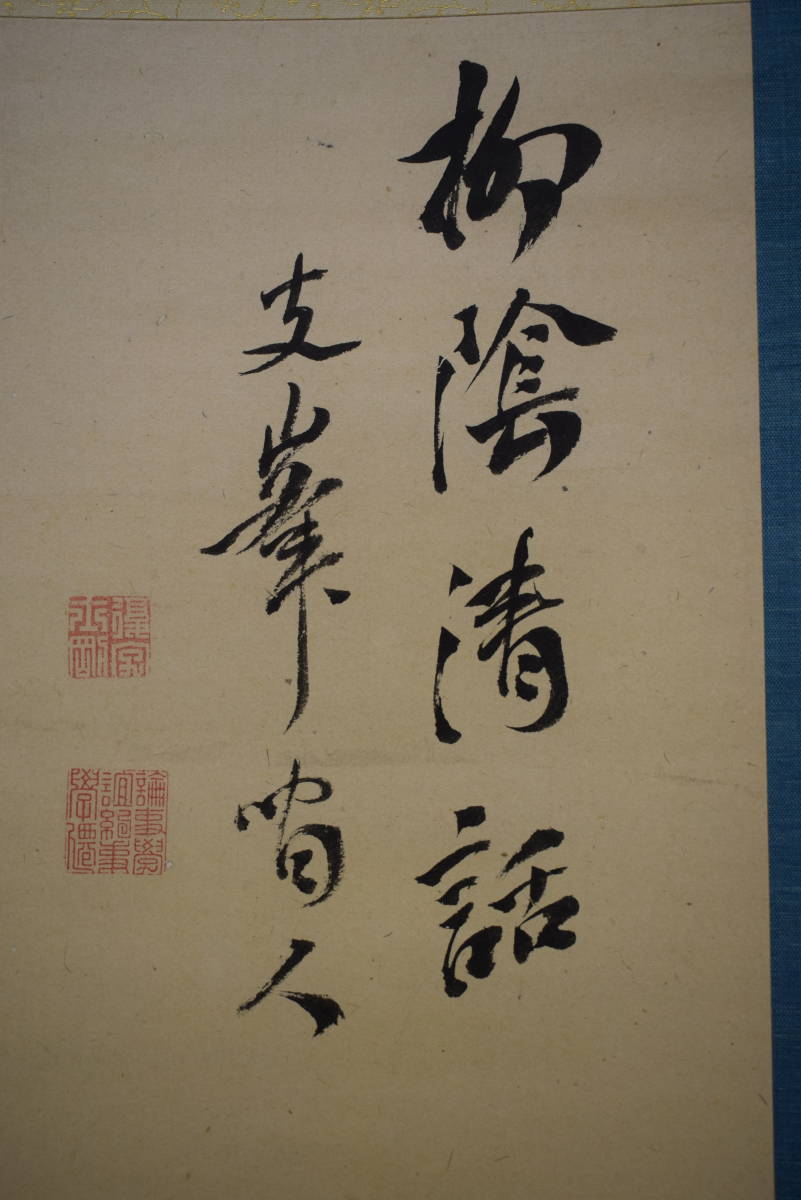 柳陰清話
支峯閒人